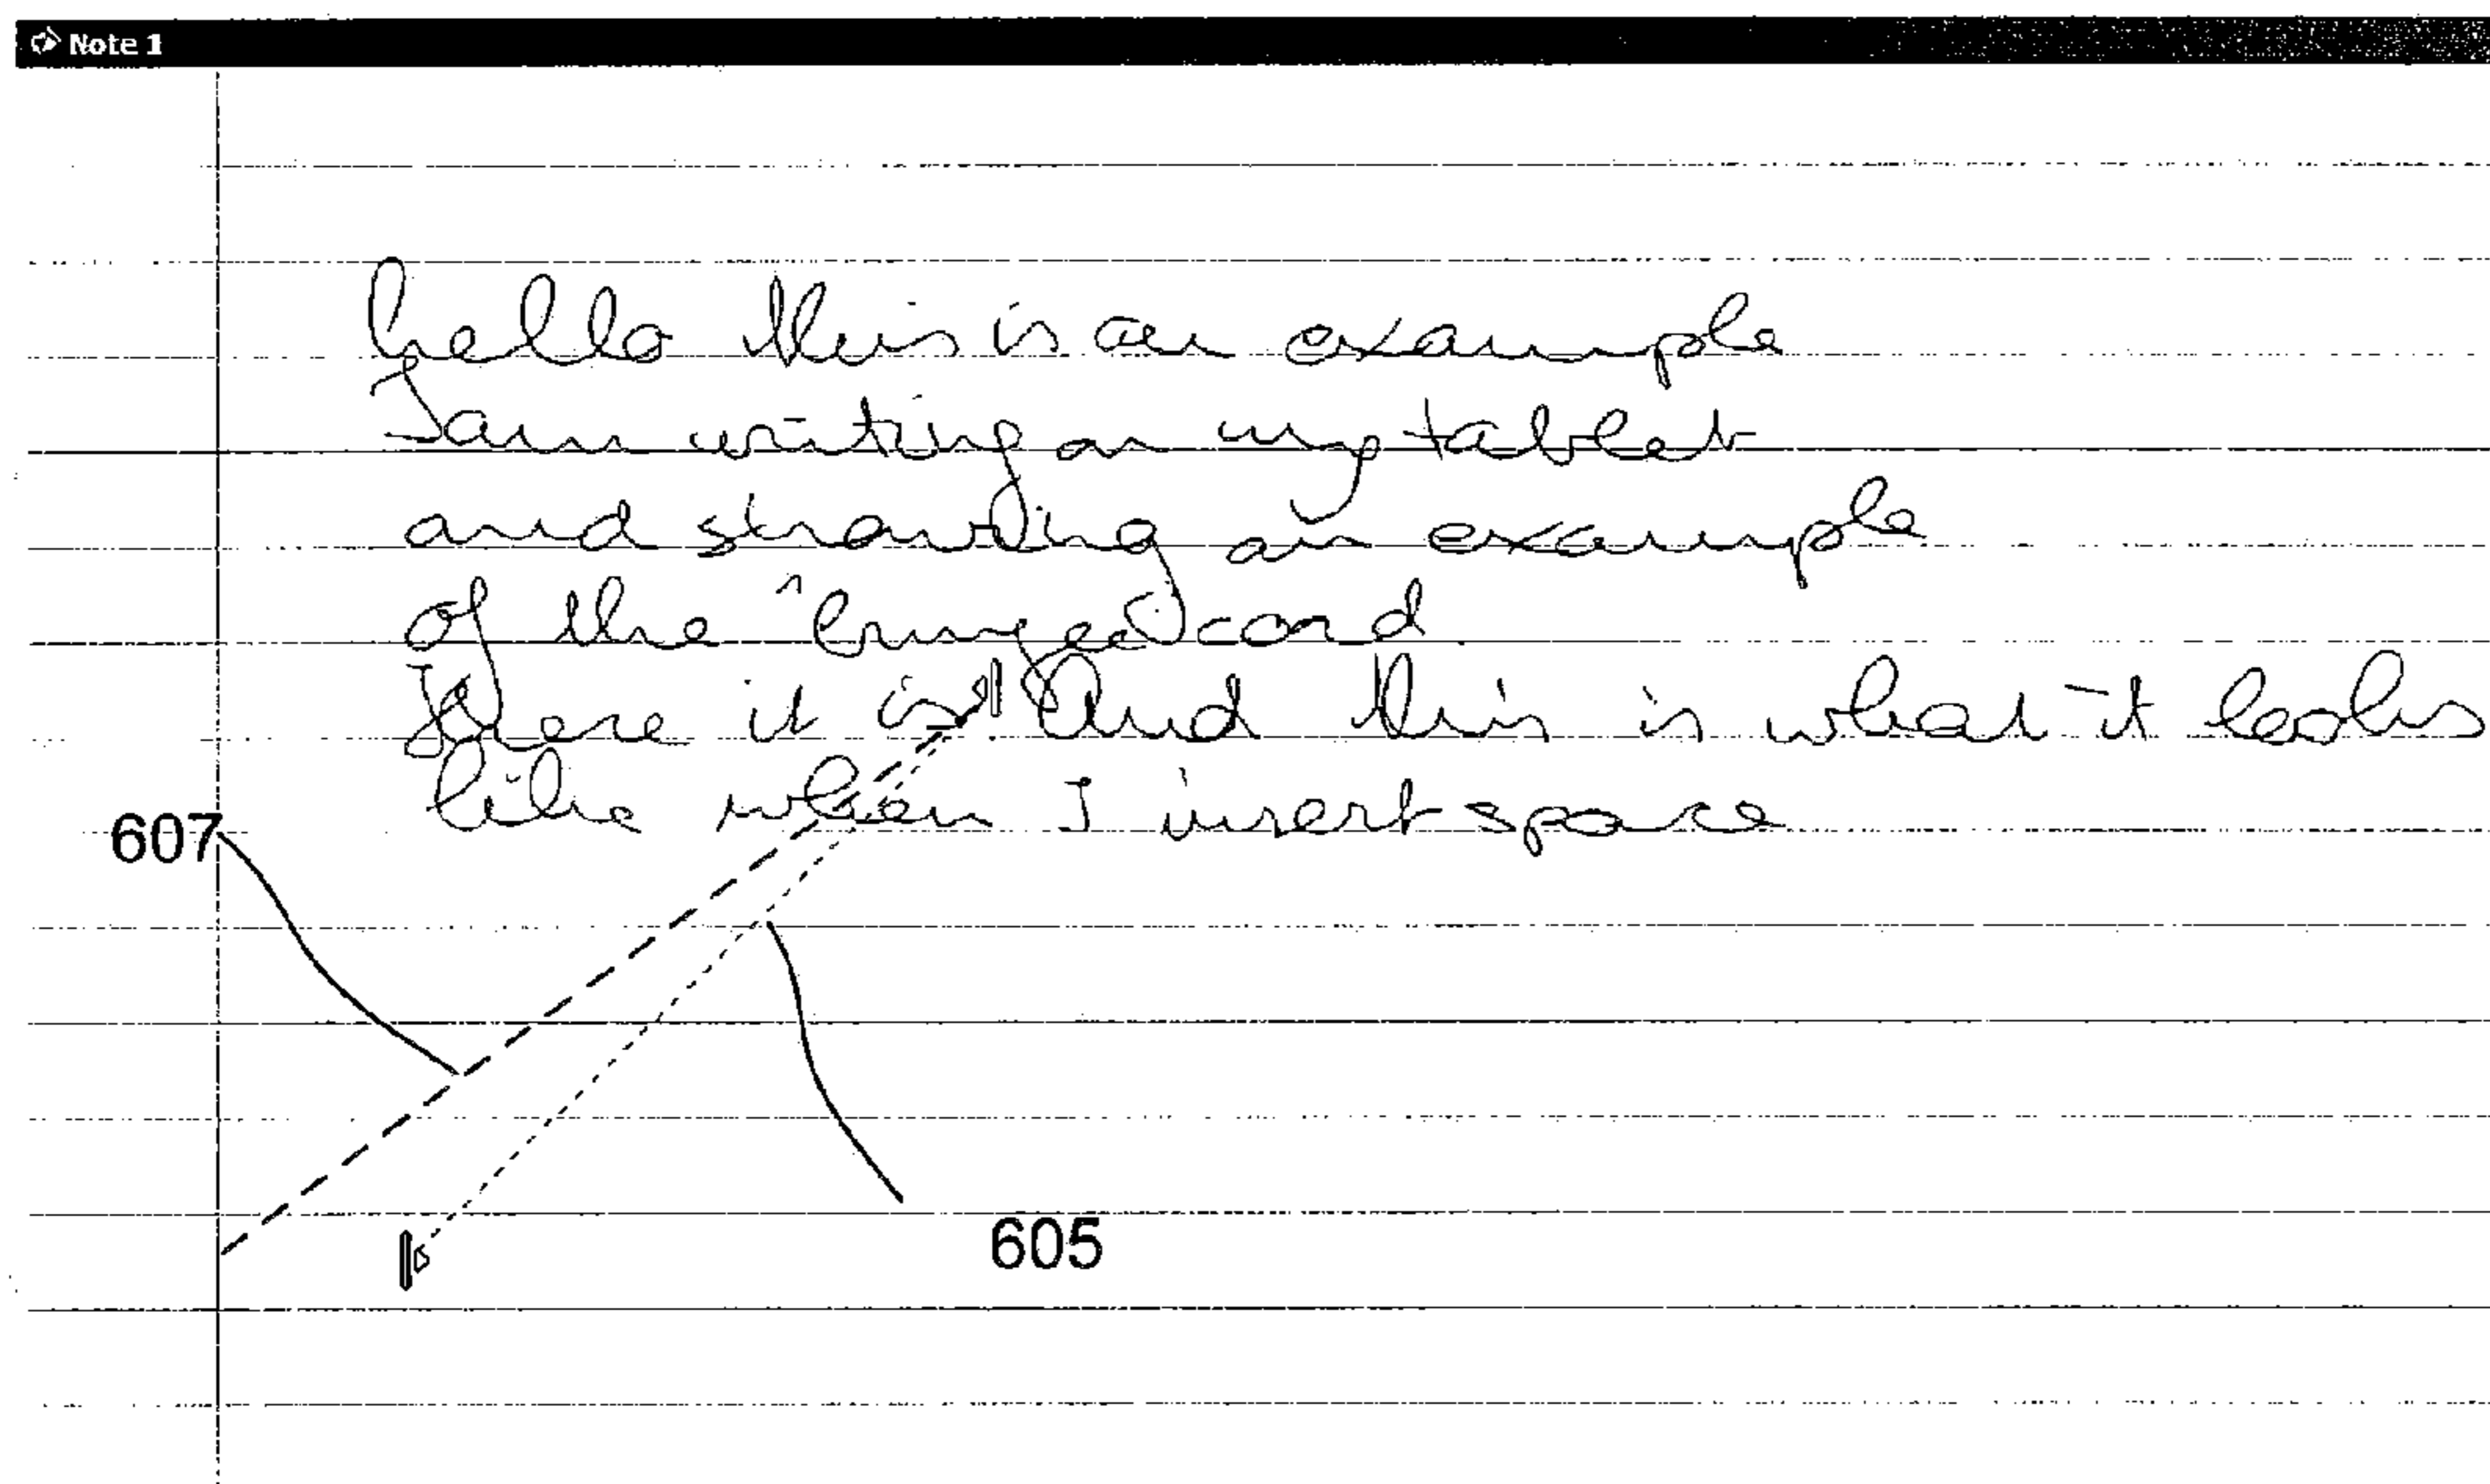 Note 1
hello this is an example
I am writing on my tablet
and showing an example
of the "bungee" cord
Here it is And this is what it looks
like when I insert space
607
605